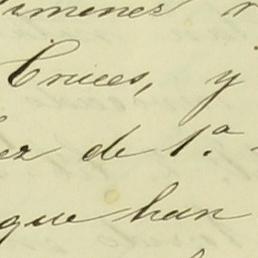 imenez
Cruces, y
ez de 1.ª
que han